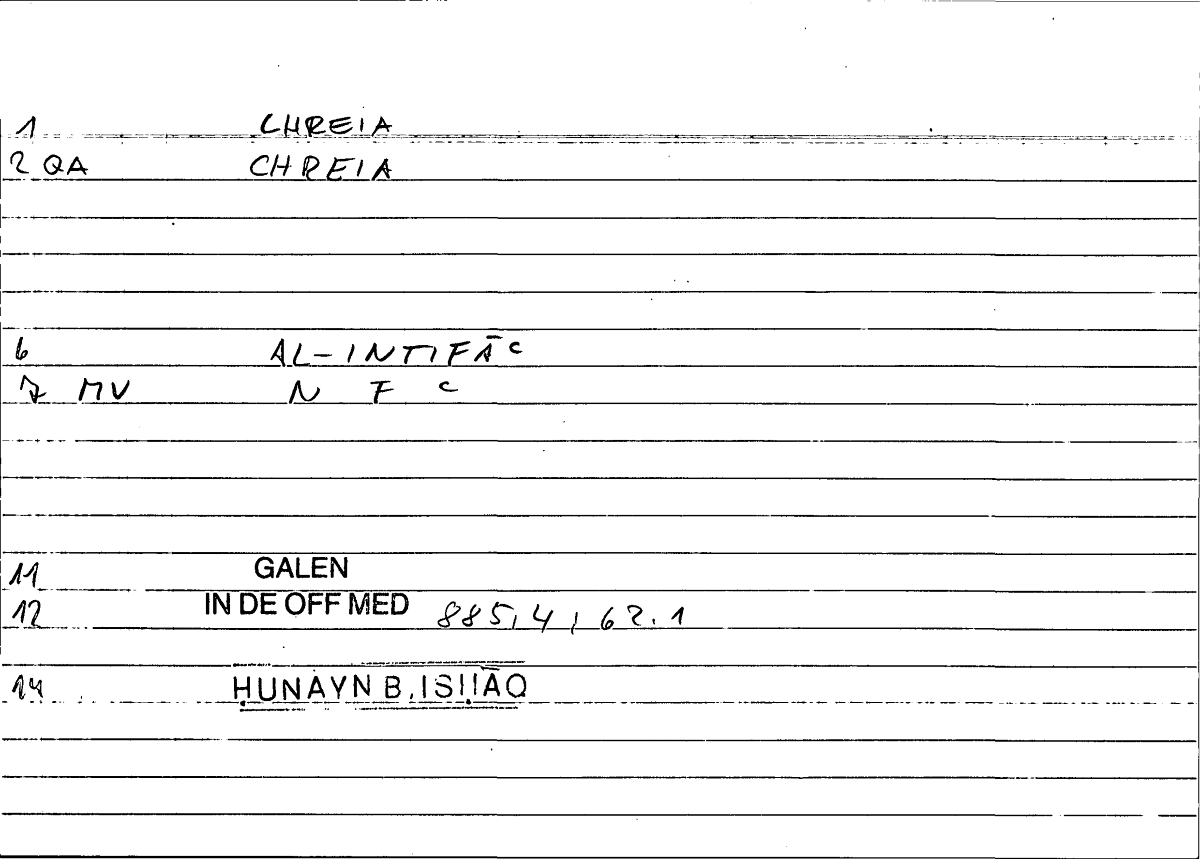 1 CHREIA
2 QA CHREIA
6 AL-INTIFĀ c
7 MV N F c
11 GALEN
12 IN DE OFF MED 885,4,62.1
14 ḤUNAYN B. ISḤĀQ